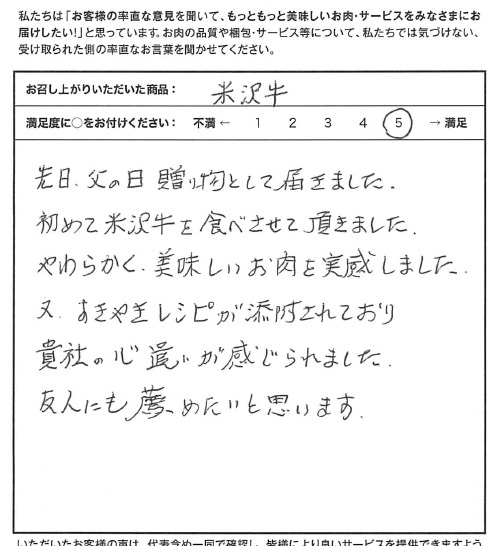 私たちは「お客様の率直な意見を聞いて、もっともっと美味しいお肉・サービスをみなさまにお
届けしたい!」と思っています。お肉の品質や梱包・サービス等について、私たちでは気づけない、
受け取られた側の率直なお言葉を聞かせてください。
お召し上がりいただいた商品： 米沢牛
満足度に○をお付けください： 不満 ← 1 2 3 4 5 → 満足
先日、父の日贈り物として届きました.
初めて米沢牛を食べさせて頂きました.
やわらかく、美味しいお肉を実感しました.
又、すきやきレシピが添付されており
貴社の心遣いが感じられました.
友人にも薦めたいと思います.
いただいたお客様の声は、代表含め一同で確認し、皆様により良いサービスを提供できますよう